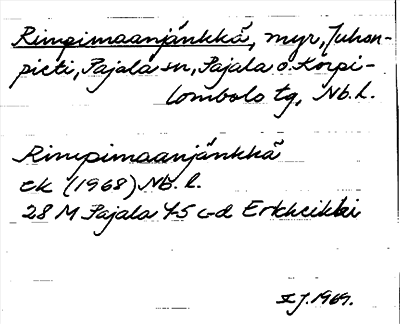 Rimpimaanjänkkä, myr, Juhon-
pieti, Pajala sn, Pajala o. Korpi-
lombolo tg, Nb. l.
Rimpimaanjänkkä
ek (1968) Nb. l.
28 M Pajala 4-5 c-d Erkheikki
J. 1969.